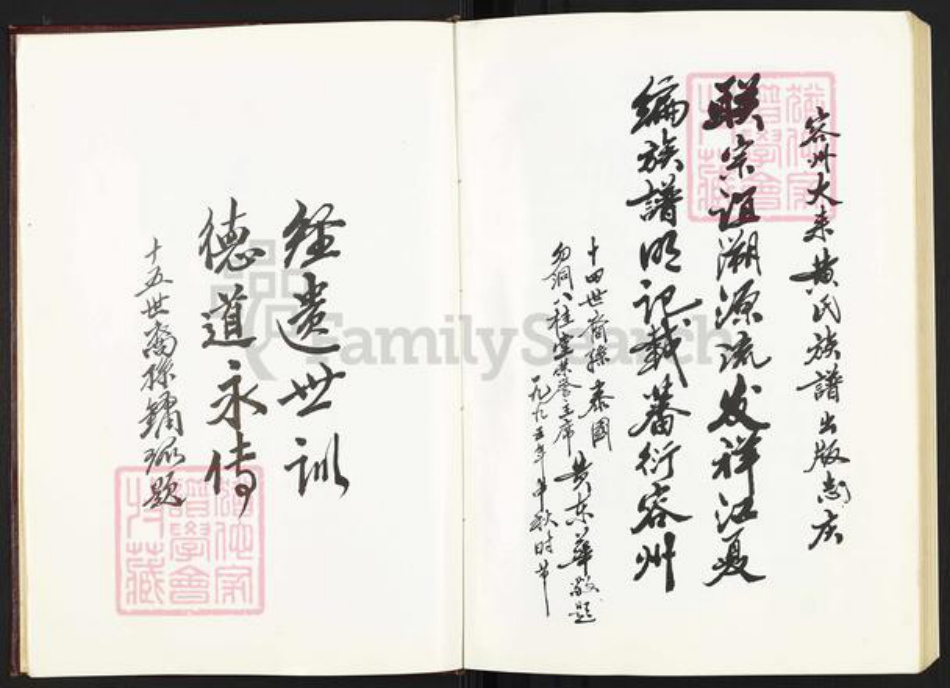 容州大来黄氏族譜出版誌庆
联宗谊溯源流发祥江夏
编族譜明记载蕃衍容州
十四世裔孫泰國
勿洞八桂堂荣誉主席
黄东華敬题
一九九五年中秋时节
经遗世训
德道永传
十五世裔孫镛琚题
FamilySearch